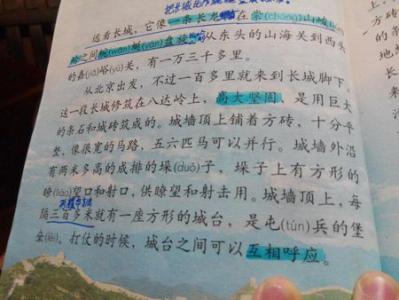 把长城比作
远看长城，它像一条长龙，在崇(chóng)山峻
岭之间蜿(wān)蜒(yán)盘旋。从东头的山海关到西头
的嘉(jiā)峪(yù)关，有一万三千多里。
从北京出发，不过一百多里就来到长城脚下。
这一段长城修筑在八达岭上，高大坚固，是用巨大
的条石和城砖筑成的。城墙顶上铺着方砖，十分平
整，像很宽的马路，五六匹马可以并行。城墙外沿
有两米多高的成排的垛(duǒ)子，垛子上有方形的
瞭(liào)望口和射口，供瞭望和射击用。城墙顶上，每
隔三百多米就有一座方形的城台，是屯(tún)兵的堡
垒(lěi)。打仗的时候，城台之间可以互相呼应。